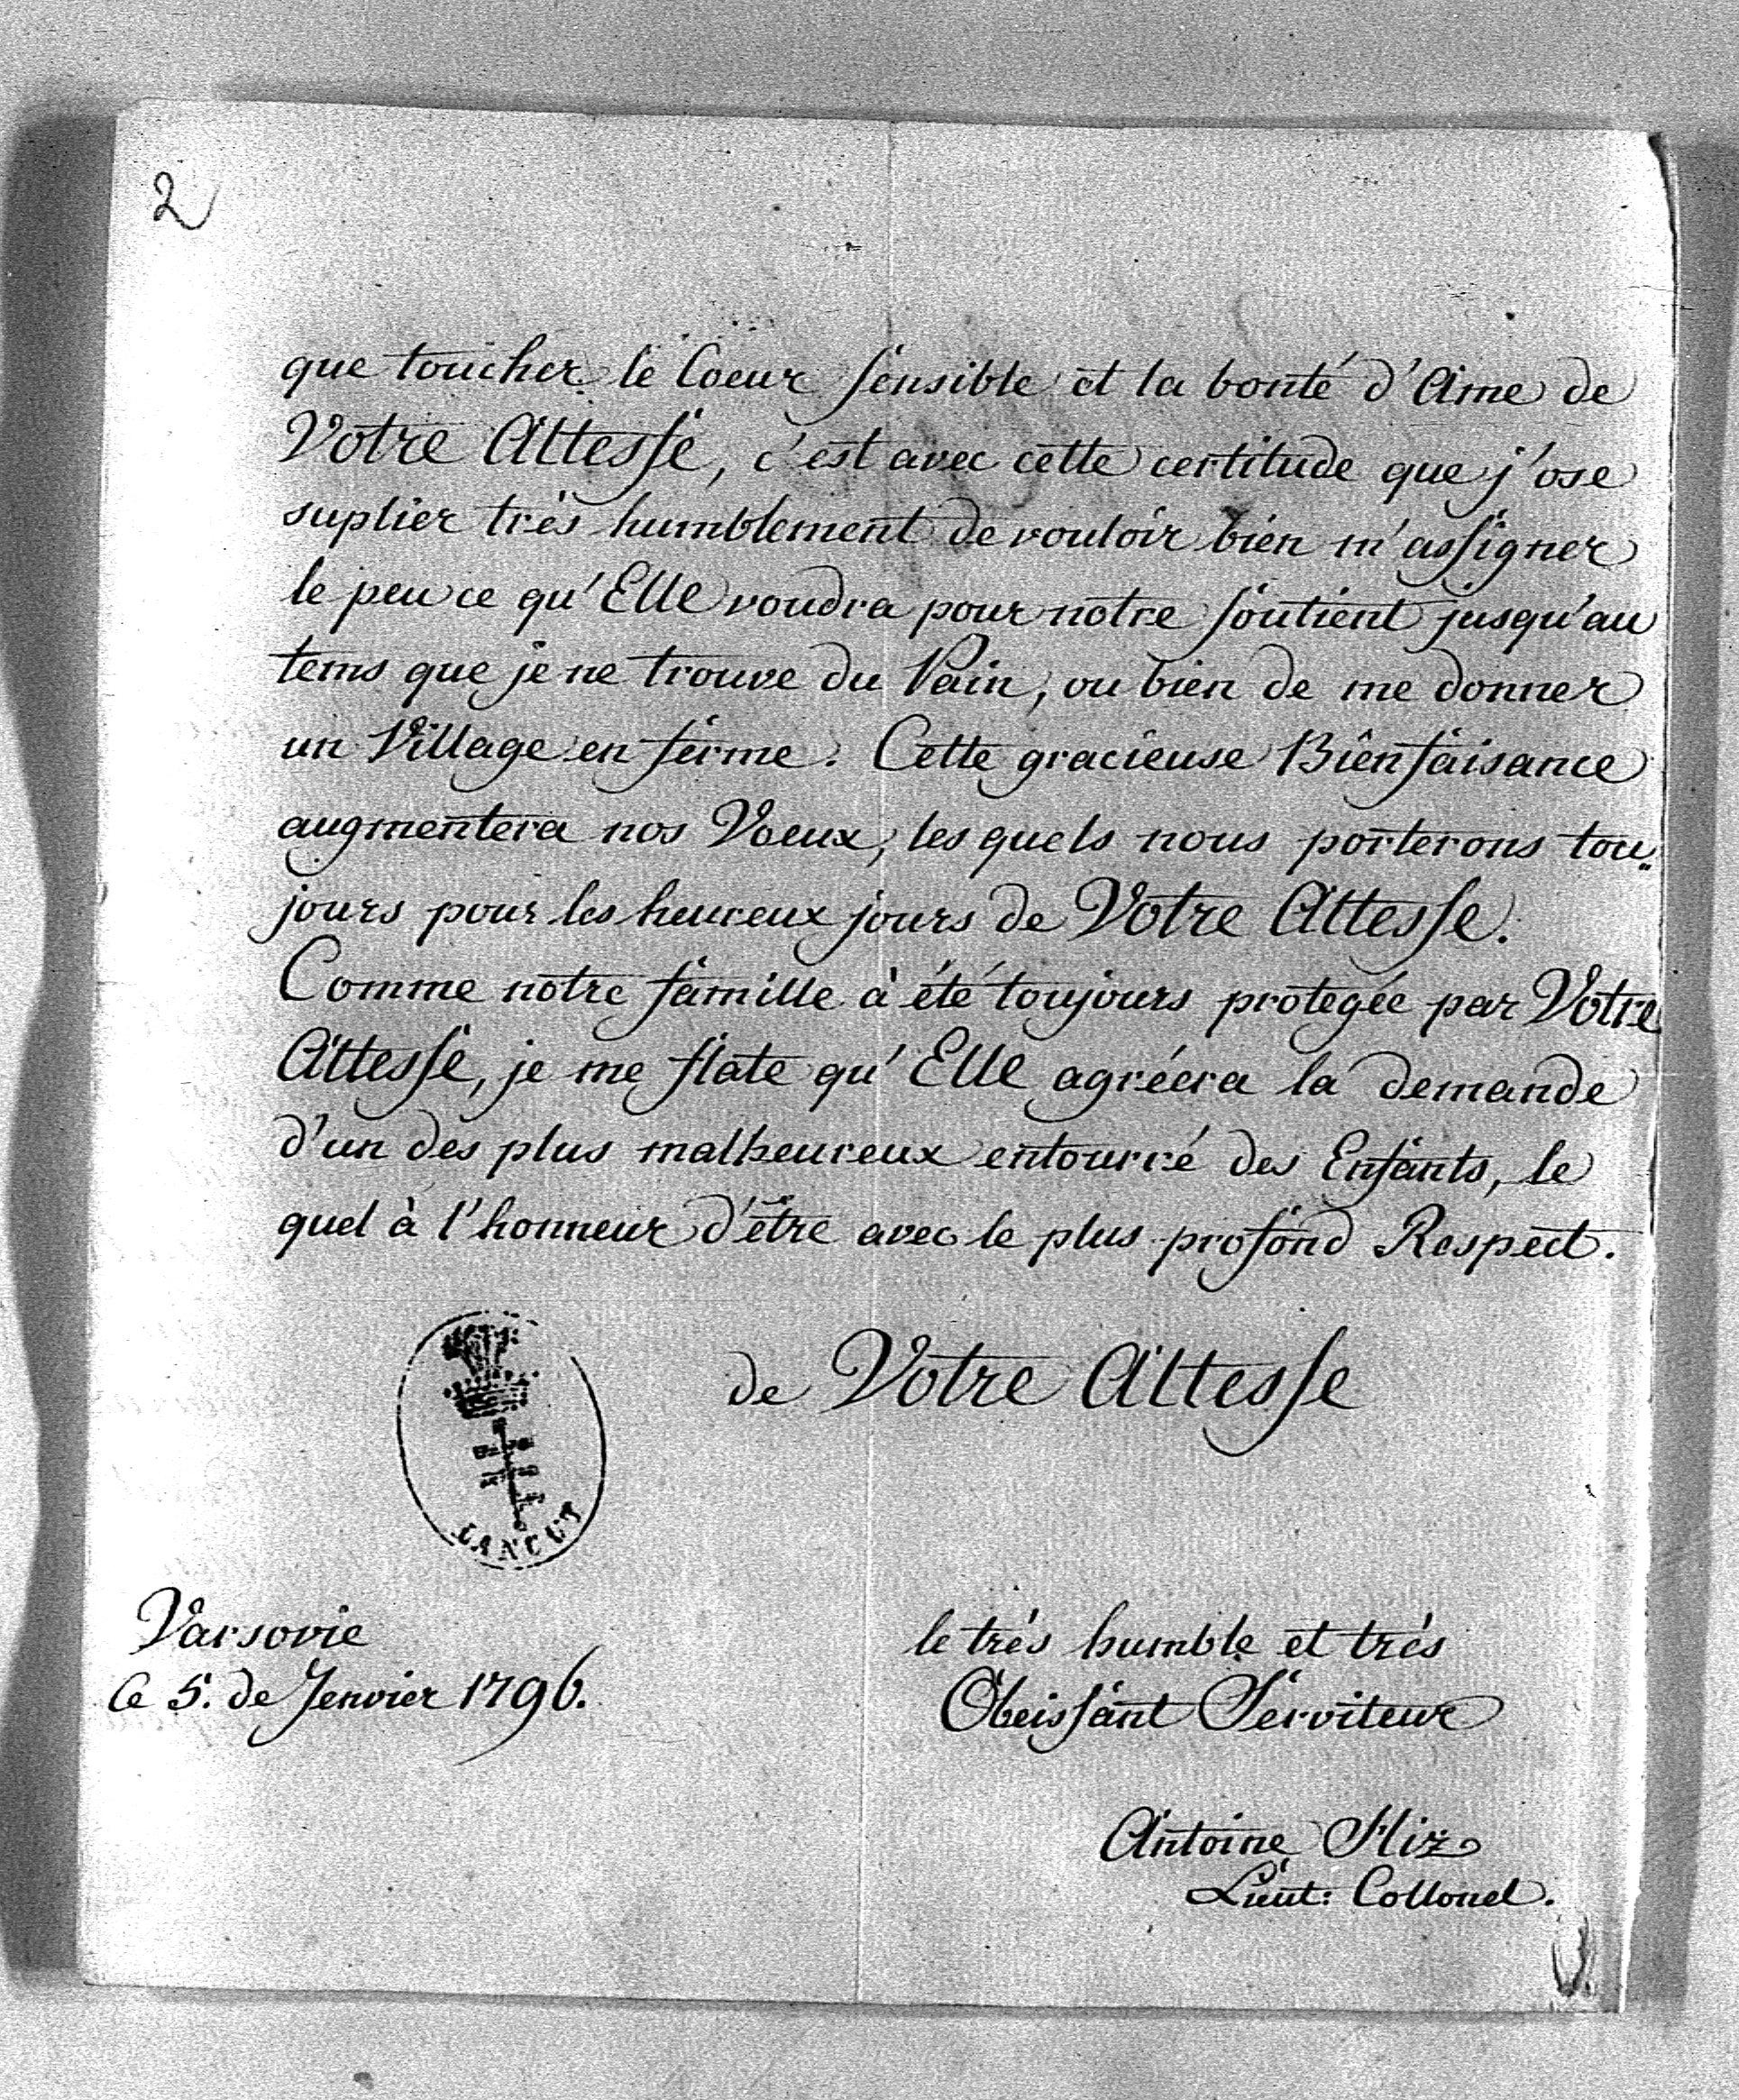 2
que toucher le Coeur sensible et la bonté d'Ame de
Votre Altesse, c'est avec cette certitude que j'ose
suplier très humblement de vouloir bien m'assigner
le peu ce qu'Elle voudra pour notre soutient jusqu'au
tems que je ne trouve du Pain, ou bien de me donner
un Village en ferme. Cette gracieuse Bienfaisance
augmentera nos Voeux, les quels nous porterons tou„
jours pour les heureux jours de Votre Altesse.
Comme notre famille à été toujours protegée par Votre
Altesse, je me flate qu'Elle agréera la demande
d'un des plus malheureux entourré des Enfants, le
quel à l'honneur d'être avec le plus profond Respect.
de Votre Altesse
ŁAŃCUT
Varsovie
le 5. de Jenvier 1796.
le très humble et très
Obeissant Serviteur
Antoine
Lieut: Collonel.